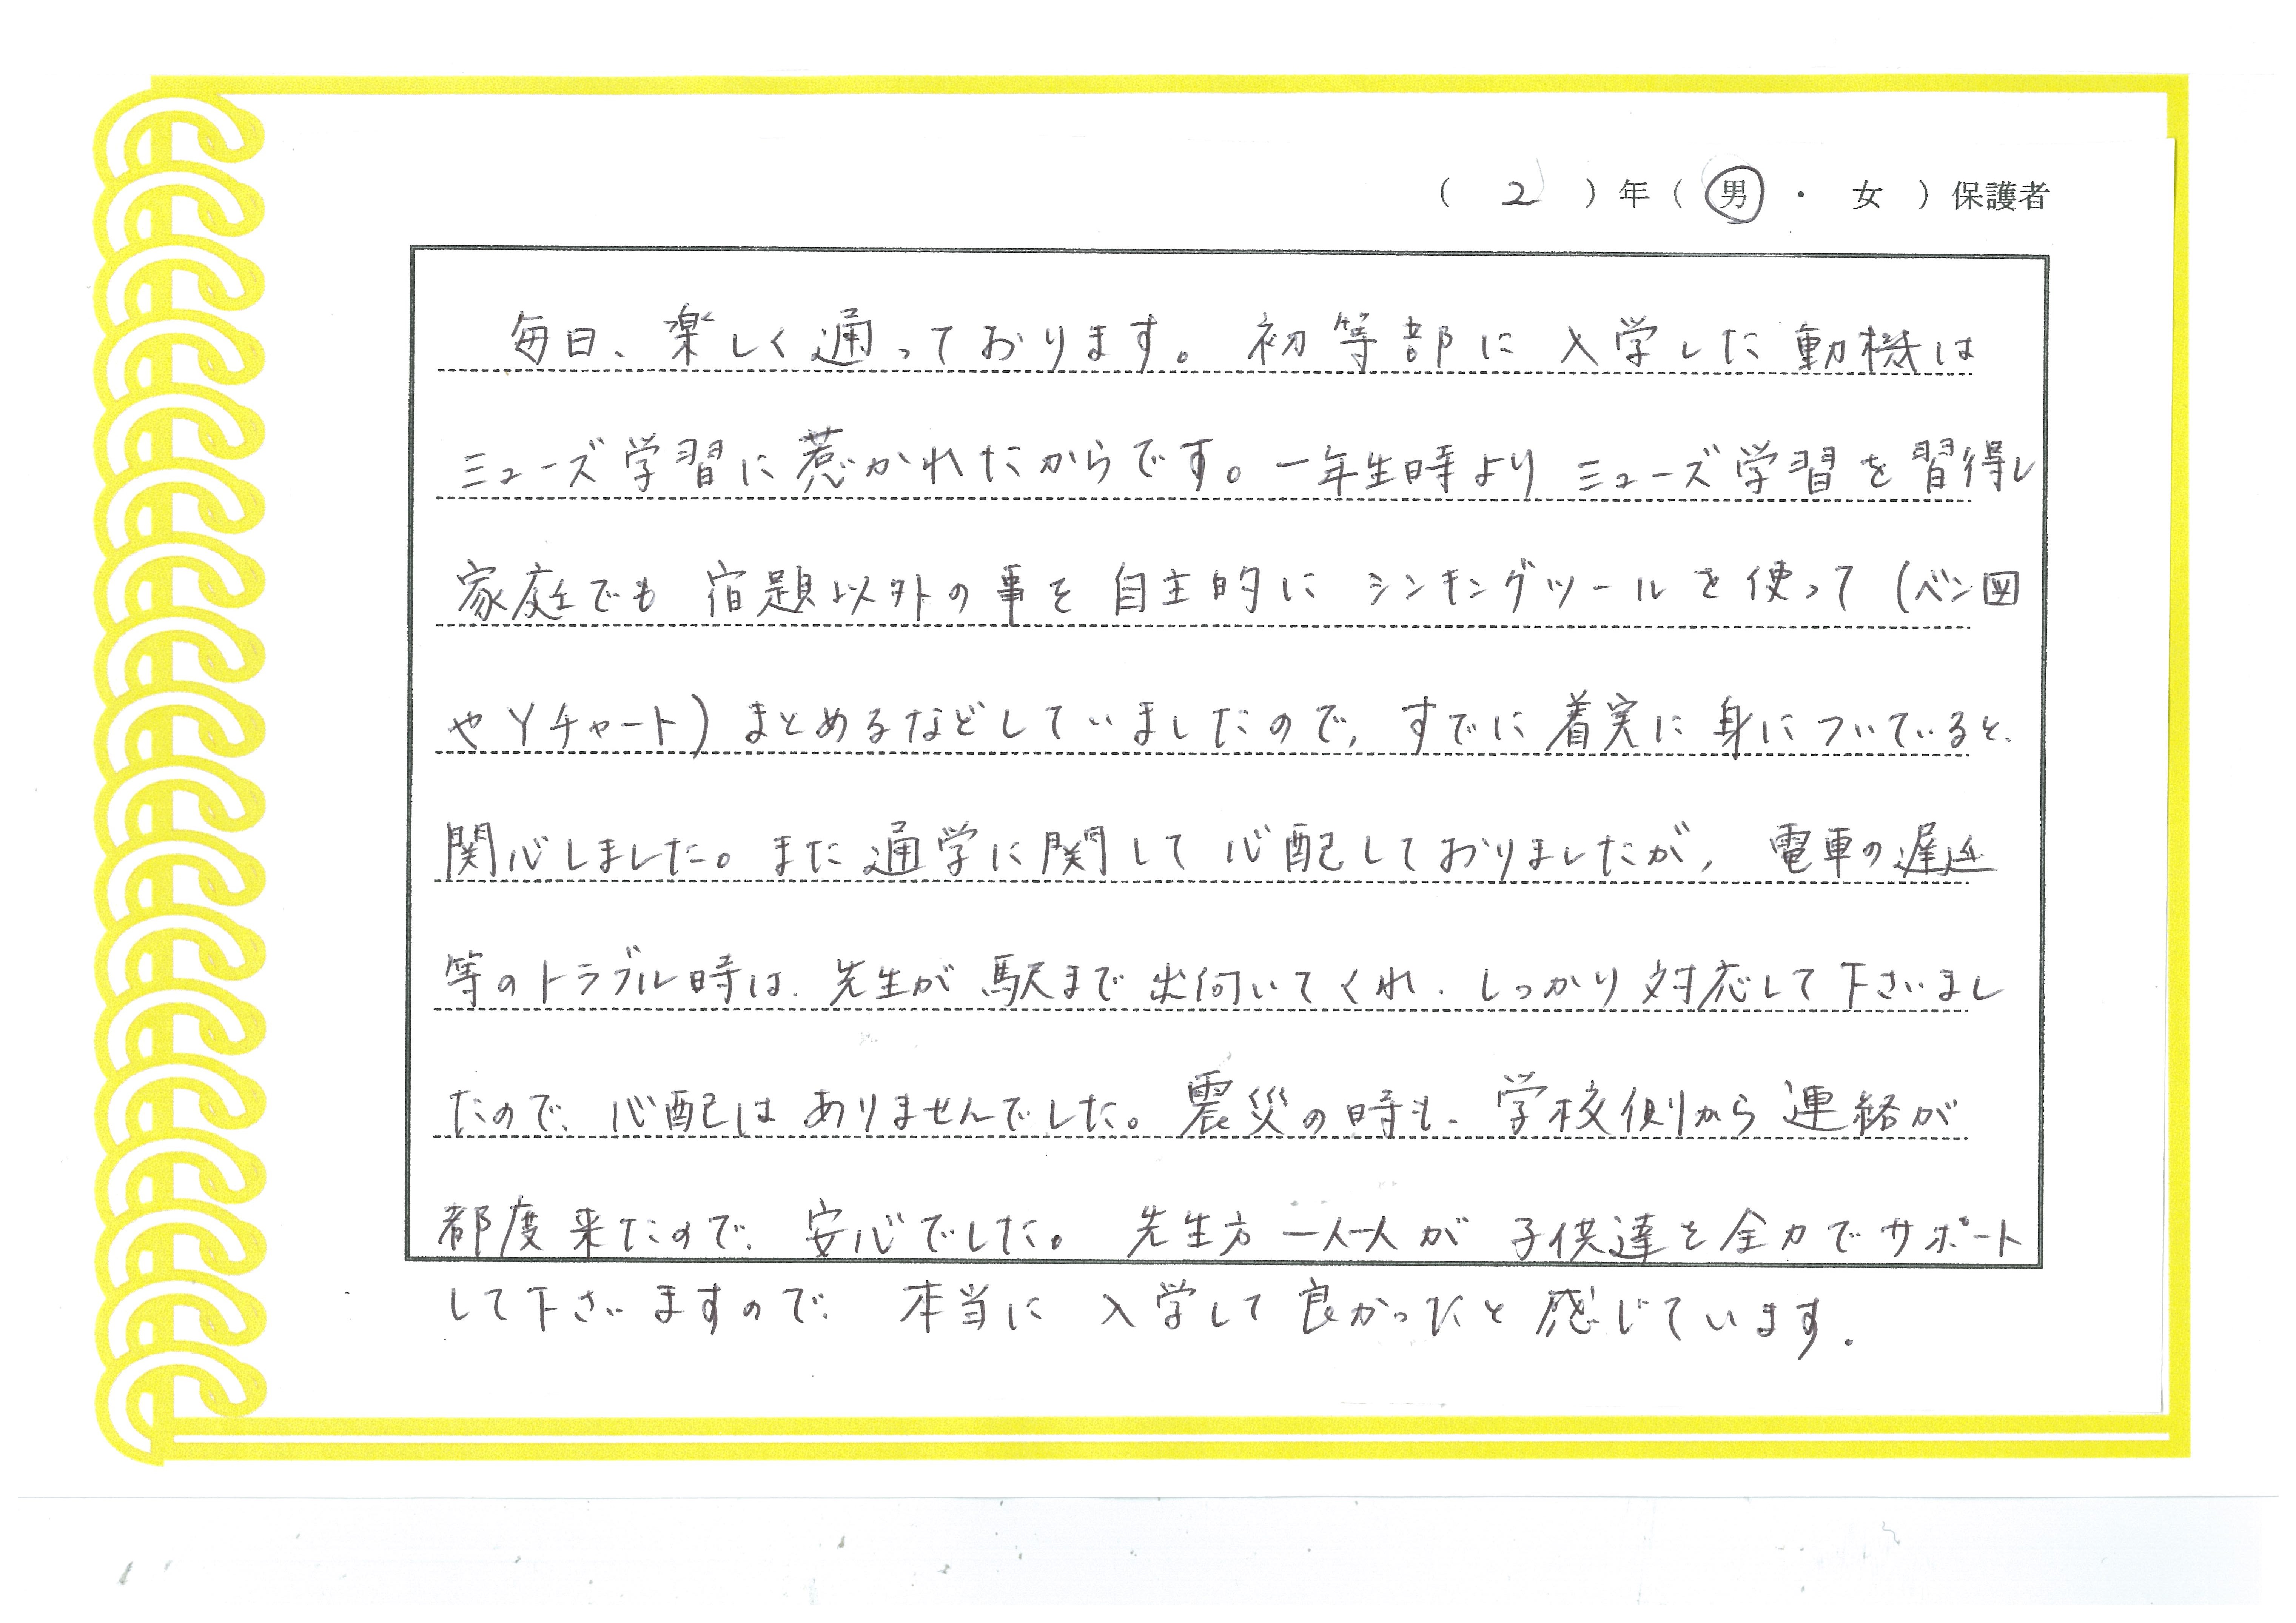 ( 2 ) 年 ( 男 ・ 女 ) 保護者
毎日、楽しく通っております。初等部に入学した動機は
ミューズ学習に惹かれたからです。一年生時よりミューズ学習を習得し
家庭でも宿題以外の事を自主的にシンキングツールを使って(ベン図
やYチャート)まとめるなどしていましたので、すでに着実に身についていると、
関心しました。また通学に関して心配しておりましたが、電車の遅延
等のトラブル時は、先生が駅まで出向いてくれ、しっかり対応して下さいまし
たので、心配はありませんでした。震災の時も、学校側から連絡が
都度来たので、安心でした。先生方一人一人が子供達を全力でサポート
して下さいますので、本当に入学して良かったと感じています.